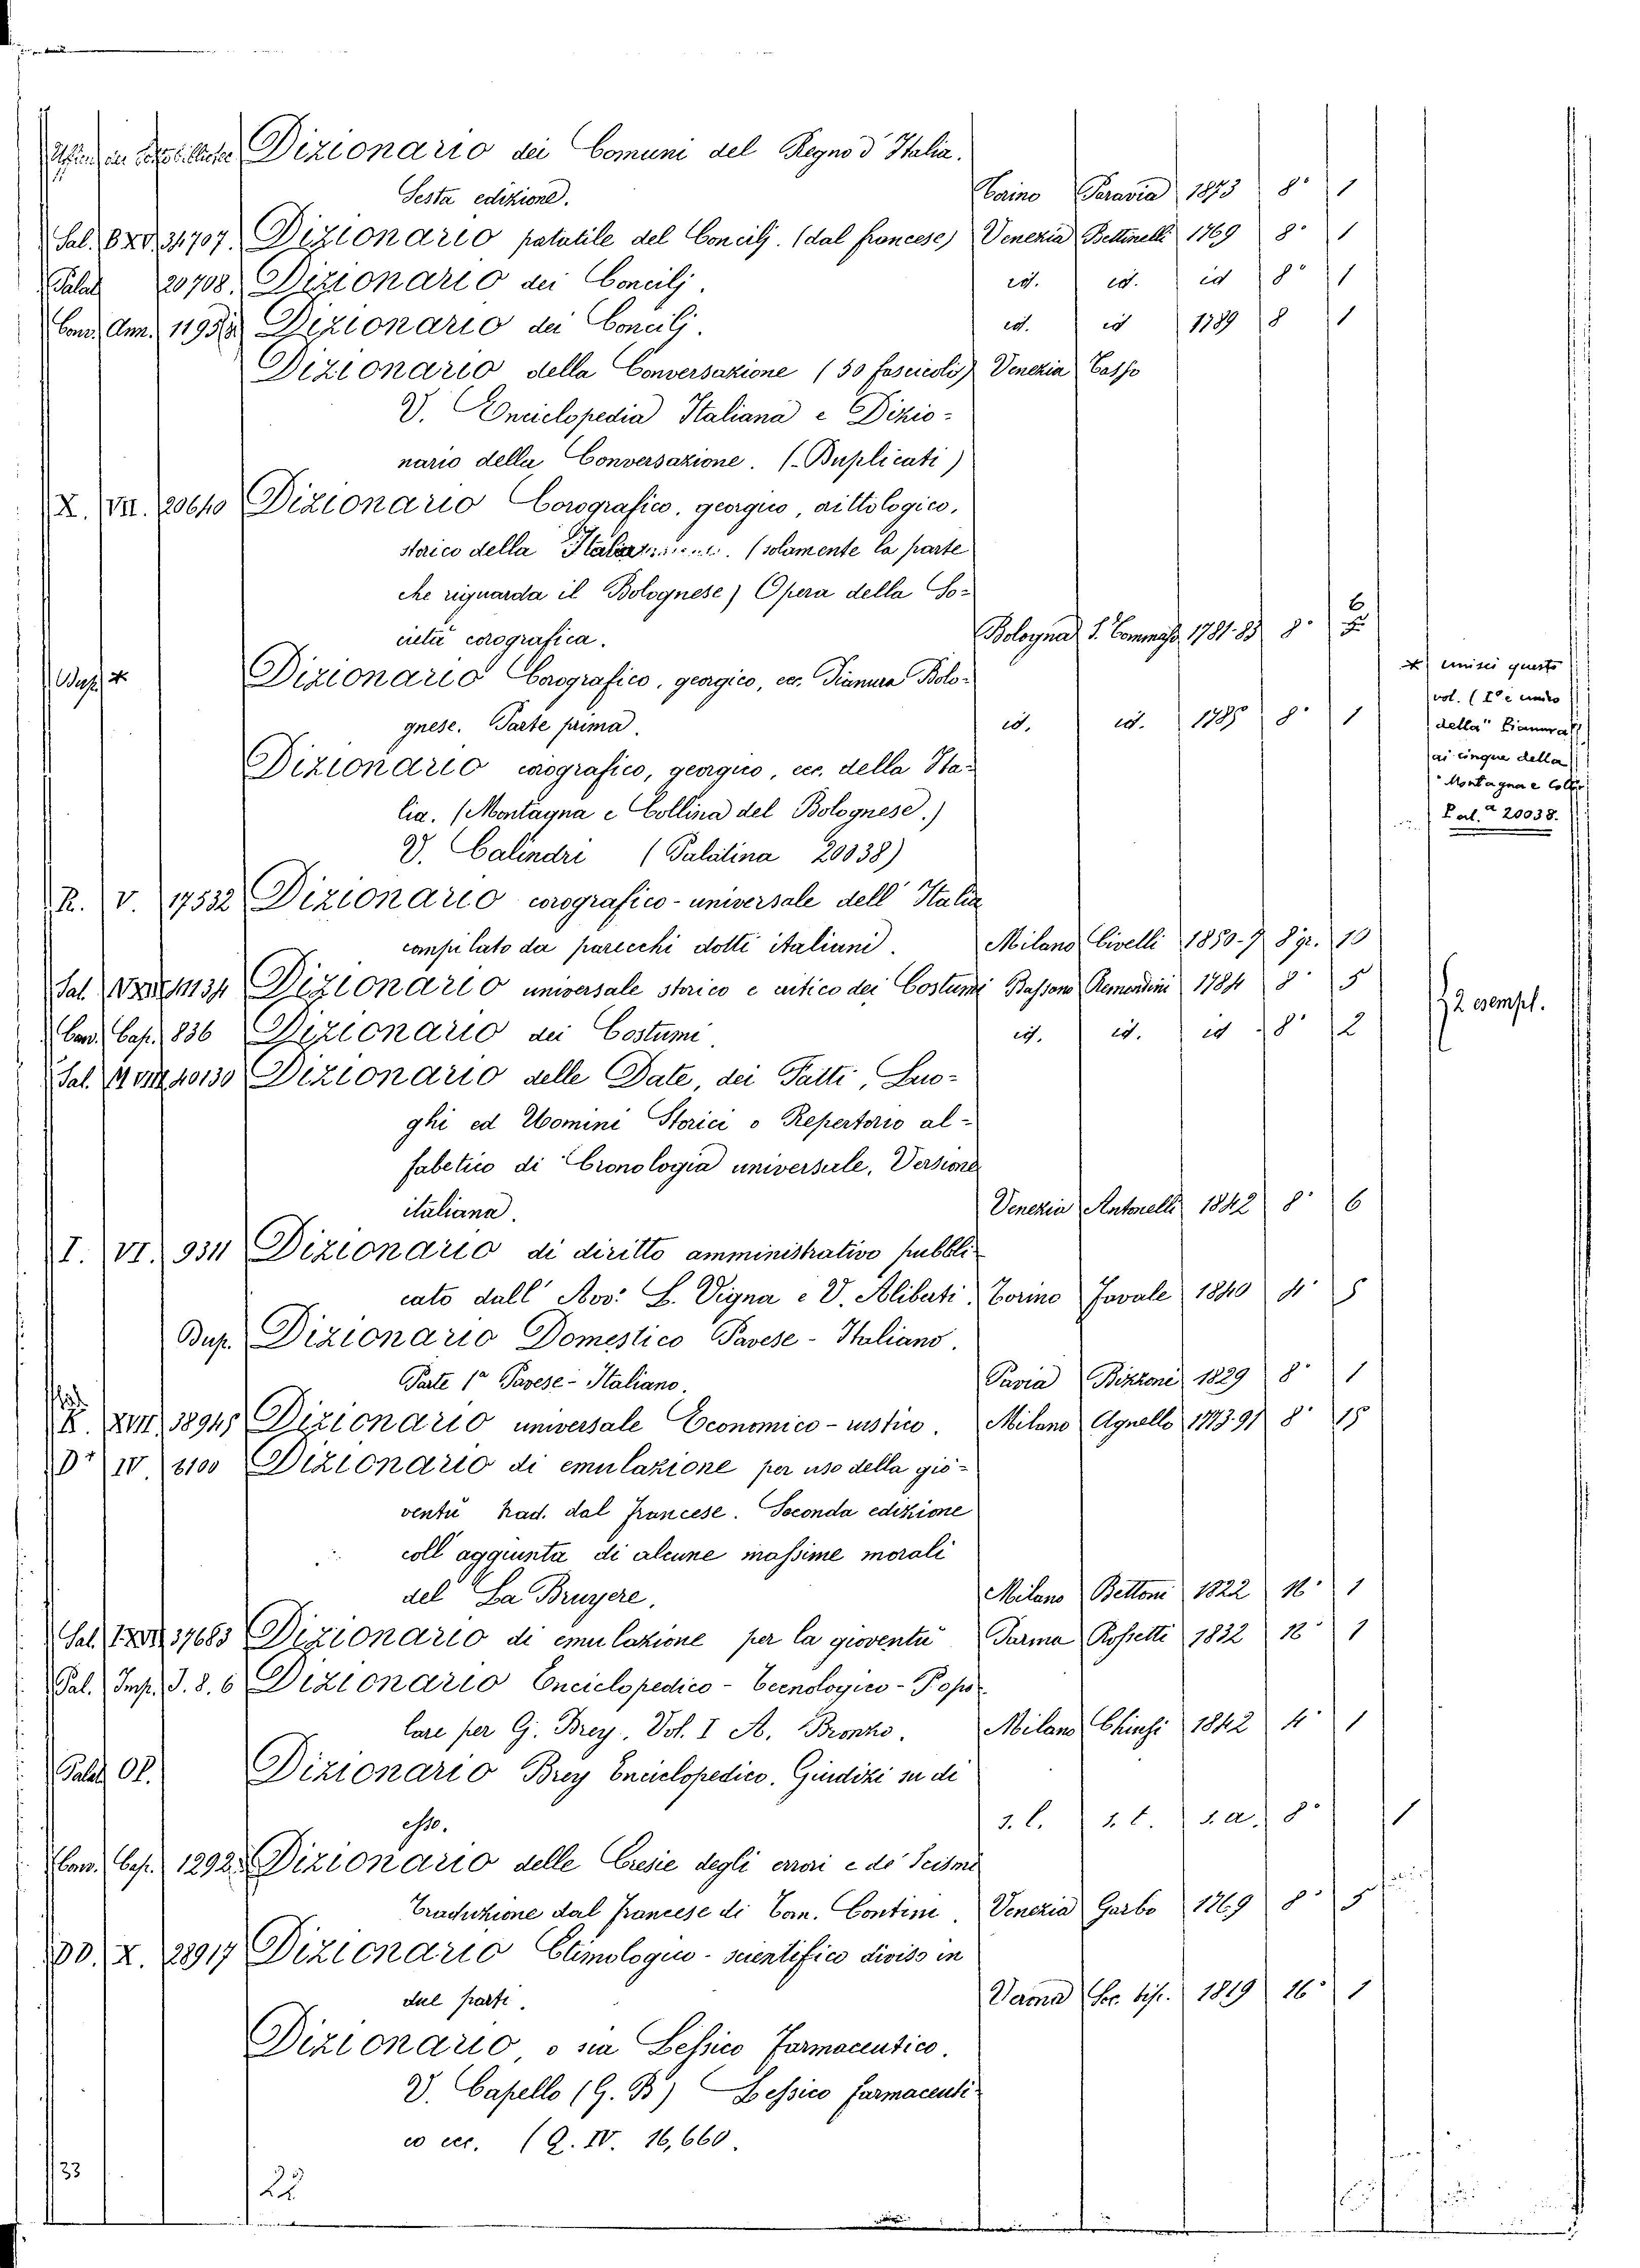 Dizionario dei Comuni del Regno d'Italia.
Sesta edizione. Torino Paravia 1873 8° 1
Sal. B XV. 31707. Dizionario patatile del Concilj. (dal francese) Venezia Bettinelli 1769 8° 1
Palat 20708. Dizionario dei Concilj. id. id. id 8° 1
Conv. Ann. Dizionario dei Concilj. id. id 1789 8 1
Dizionario della Conversazione (30 fascicoli) Venezia Tasso
V. Enciclopedia Italiana e Dizio-
nario della Conversazione. (Duplicati)
X. VII. 20640 Dizionario Corografico, georgico, orittologico,
storico della Italia (solamente la parte
che riguarda il Bolognese) Opera della So-
cietà corografica. Bologna S. Tommaso 1781-83 8° 6
Dup. * Dizionario Corografico, georgico, ecc. Pianura Bolo-
gnese. Parte prima. id. id. 1785 8° 1
*) unisci questo
vol. (I° e unico
della "Pianura"
ai cinque della
"Montagna e Coll
Pal.ª 20038.
Dizionario corografico, georgico, ecc. della Ita-
lia. (Montagna e Collina del Bolognese.)
V. Calindri (Palatina 20038)
R. V. 17532 Dizionario corografico-universale dell'Italia
compilato da parecchi dotti italiani. Milano Civelli 1850-7 8 gr. 10
Sal. 41134 Dizionario universale storico e critico dei Costumi Bassano Remondini 1784 8° 5
2 esempl.
Conv. Cap. 836 Dizionario dei Costumi id. id. id 8° 2
Sal. M VIII 40130 Dizionario delle Date, dei Fatti, Luo-
ghi ed Uomini Storici o Repertorio al-
fabetico di Cronologia universale. Versione
italiana. Venezia Antonelli 1842 8° 6
I. VI. 9311 Dizionario di diritto amministrativo pubbli-
cato dall'Avv: L. Vigna e V. Aliberti. Torino Favale 1840 4° 5
Dup. Dizionario Domestico Pavese-Italiano.
Parte 1ª Pavese-Italiano. Pavia Bizzoni 1829 8° 1
XVII 38945 Dizionario universale Economico-rustico. Milano Agnello 1793-97 8° 15
D+ IV 6100 Dizionario di emulazione per uso della gio-
ventù trad. dal francese. Seconda edizione
coll'aggiunta di alcune massime morali
del La Bruyere. Milano Bettoni 1822 16° 1
Sal. 37683 Dizionario di emulazione per la gioventù Parma Rossetti 1832 12° 1
Pal. Imp. J. 8. 6 Dizionario Enciclopedico-Tecnologico-Popo-
lare per G. Brey. Vol. I A. Bronzo. Milano Chiusi 1842 4° 1
Palat Op. Dizionario Brey Enciclopedico. Giudizi su di
esso. s. l. s. t. s. a. 8° 1
Conv. Cap. 1292. Dizionario delle Eresie degli errori e de' Scismi
Traduzione dal francese di Tom. Contini. Venezia Garbo 1769 8° 5
DD. X. 28917 Dizionario Etimologico-scientifico diviso in
due parti. Verona Soc. tip. 1819 16° 1
Dizionario, o sia Lessico Farmaceutico.
V. Capello (G. B) Lessico farmaceuti-
co ecc. (Q. IV. 16,660.
33 22